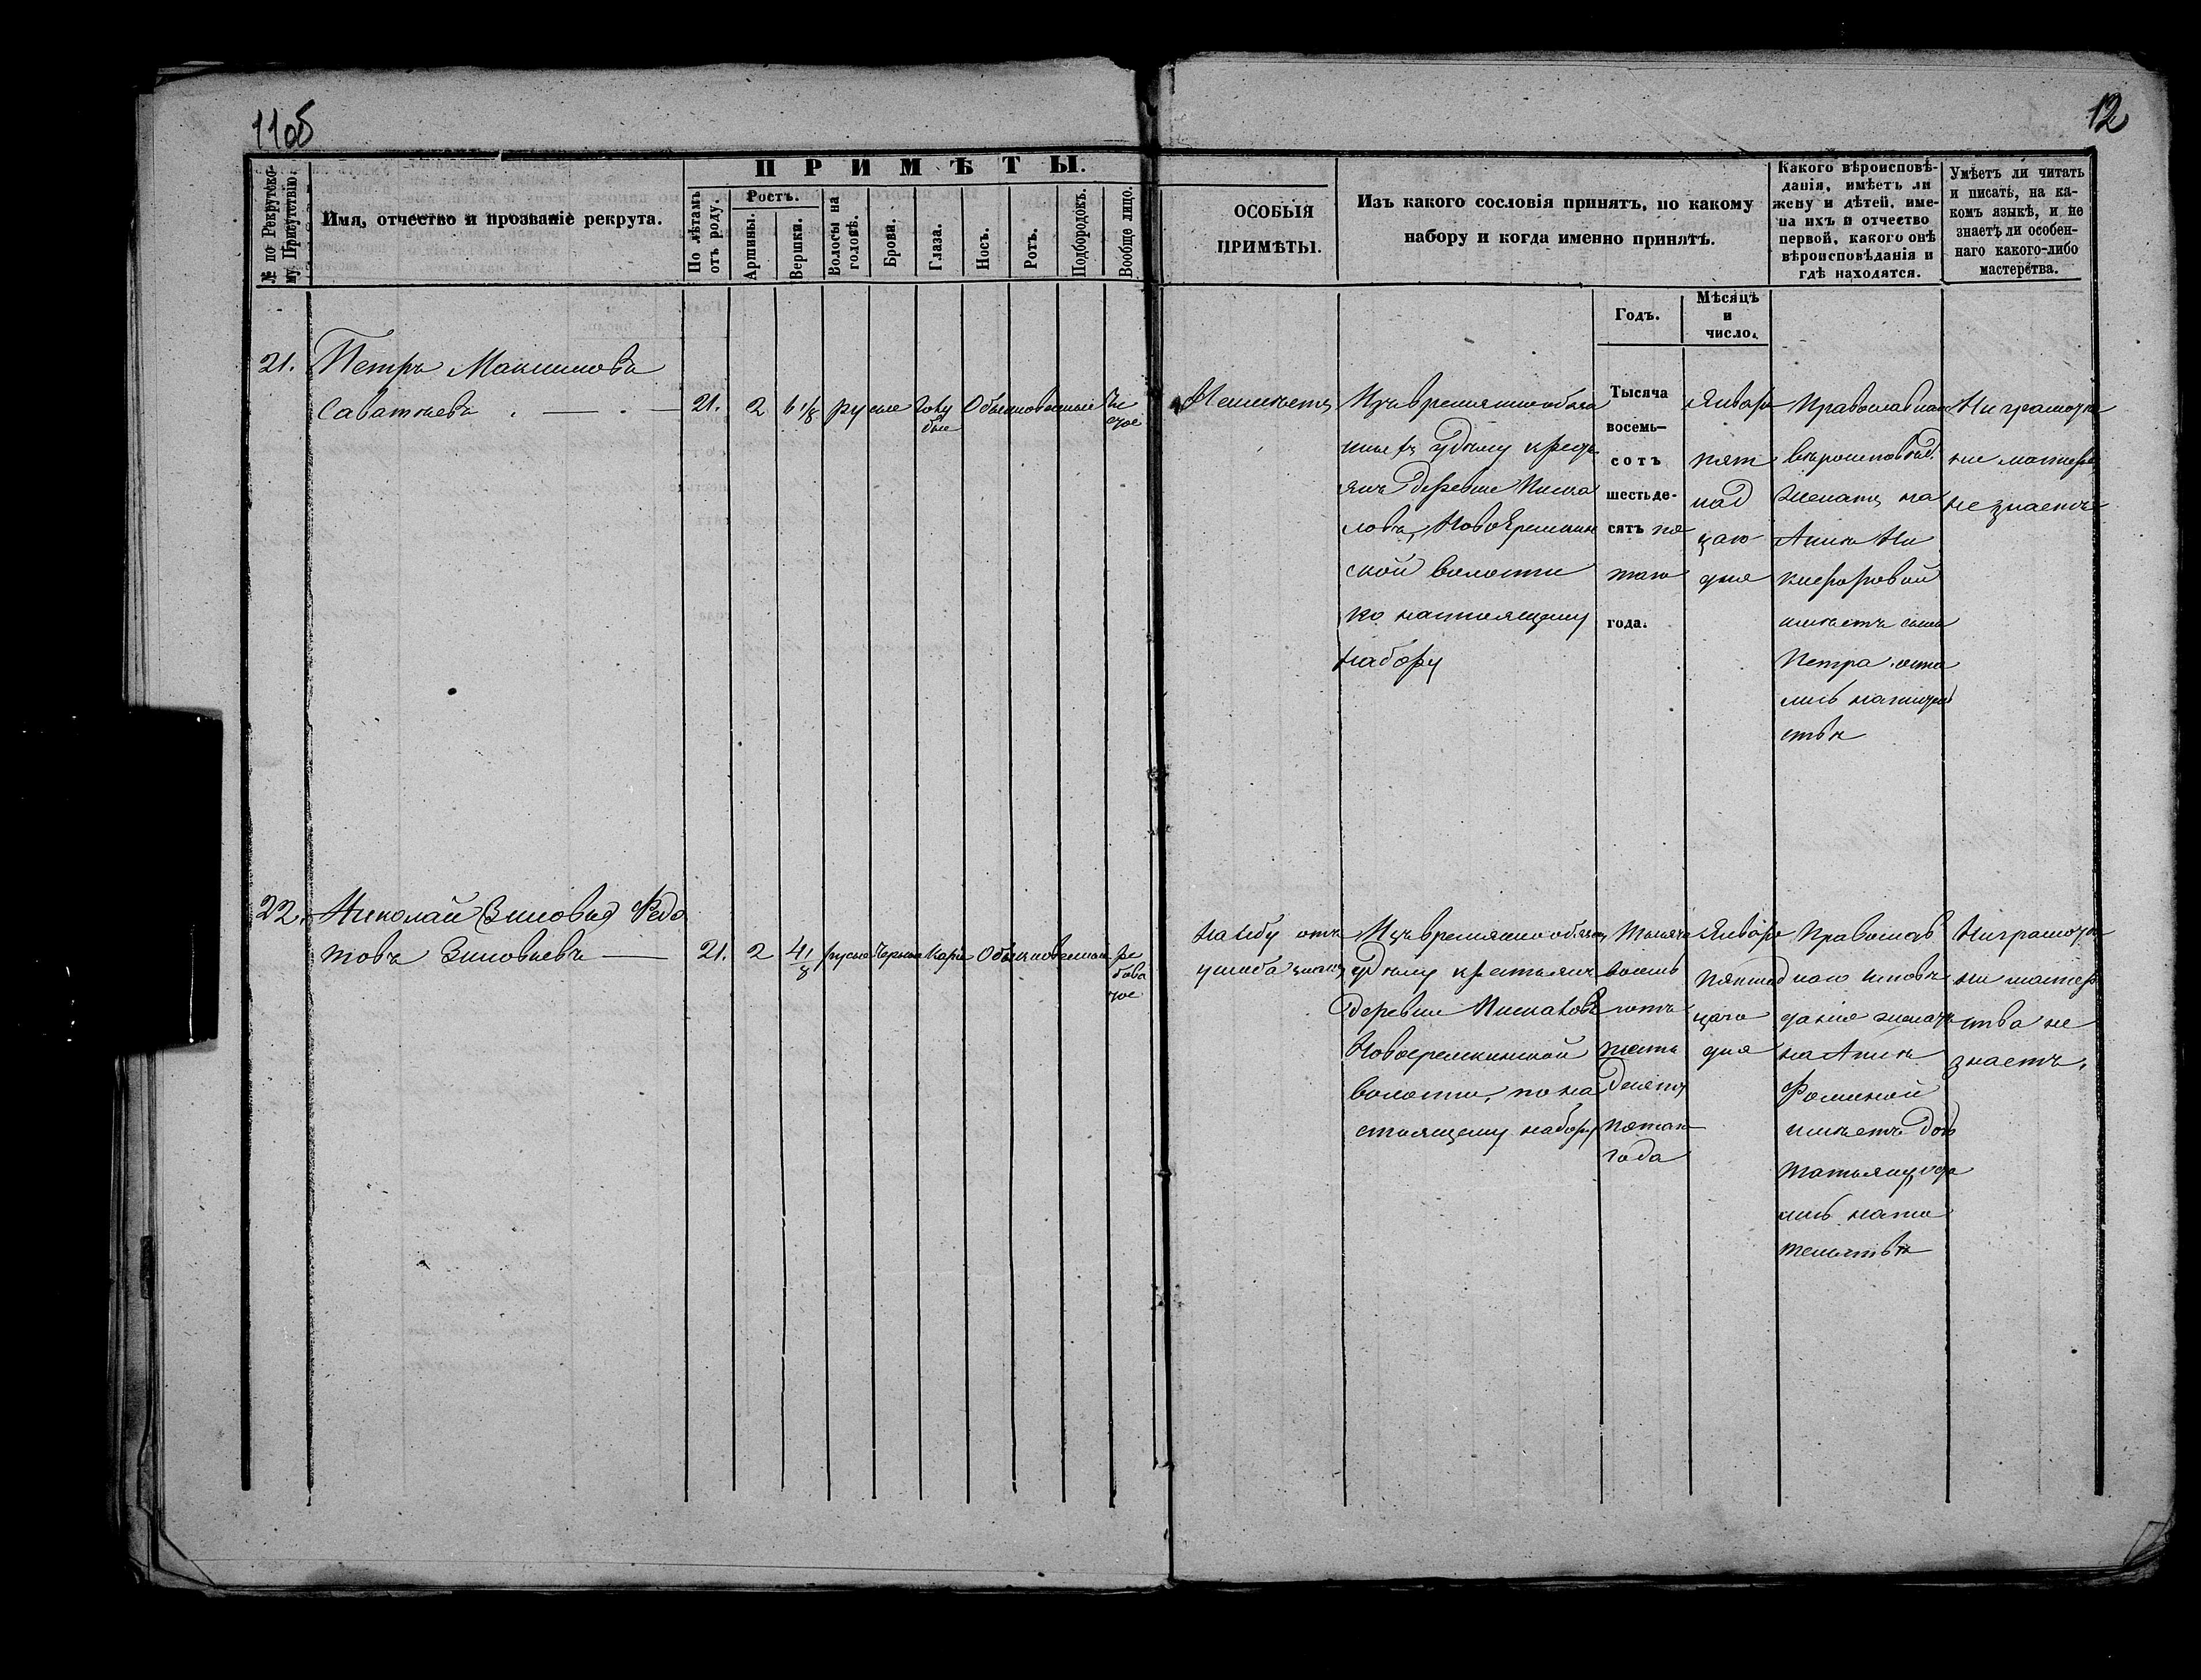 11об
12
№ по Рекрутско-
му Присутствію.
Имя, отчество и прозваніе рекрута.
ПРИМѢТЫ.
По лѣтамъ
отъ роду.
Ростъ.
Аршины.
Вершки.
Волосы на
головѣ.
Брови.
Глаза.
Носъ.
Ротъ.
Подбородокъ.
Вообще лицо.
ОСОБЫЯ
ПРИМѢТЫ.
Изъ какого сословія принятъ, по какому
набору и когда именно принятъ.
Годъ.
Мѣсяцъ
и
число.
Какого вѣроисповѣ-
данія, имѣетъ ли
жену и дѣтей, име-
на ихъ и отчество
первой, какого онѣ
вѣроисповѣданія и
гдѣ находятся.
Умѣетъ ли читать
и писать, на ка-
комъ языкѣ, и не
знаетъ ли особен-
наго какого-либо
мастерства.
21.
Петръ Максимовъ
Саватѣевъ
21.
2
6 1/8
русые
голу
бые
Обыкновенный
чи
стое
Неимѣетъ
Изъ временнообяза
крест
янъ деревни
ской волости
по настоящему
набору
Тысяча
восемь-
сотъ
шестьде-
сятъ пя
таго
года.
Января
пят
над
цаго
дня
Православнаго
вѣроисповѣд.
женатъ на
Аннѣ Ни
кифоровой
имѣетъ сына
Петра, оста
лись нажител
ствѣ
Ни грамоты
ни мастерс
не знаетъ
22.
Николай (Зиновья) Федо
товъ Зиновьевъ
21.
2
4 1/8
русые
черные
карiе
Обыкновенный
ря
бова
тое
На лбу отъ
ушиба знакъ
Изъ временнообяз
крестьянъ
деревни
Новоеремкинской
волости, по на
стоящему набору
Тысяча
восемь
сотъ
шесть
десятъ
пятаго
года
Января
пятнад
цаго
дня
Православ
наго исповѣ
данія женатъ
на Аннѣ
Фоминой
имѣетъ доч
Татьяну, оста
лись нажи
тельствѣ
Ни грамоты
ни мастер
ства не
знаетъ.